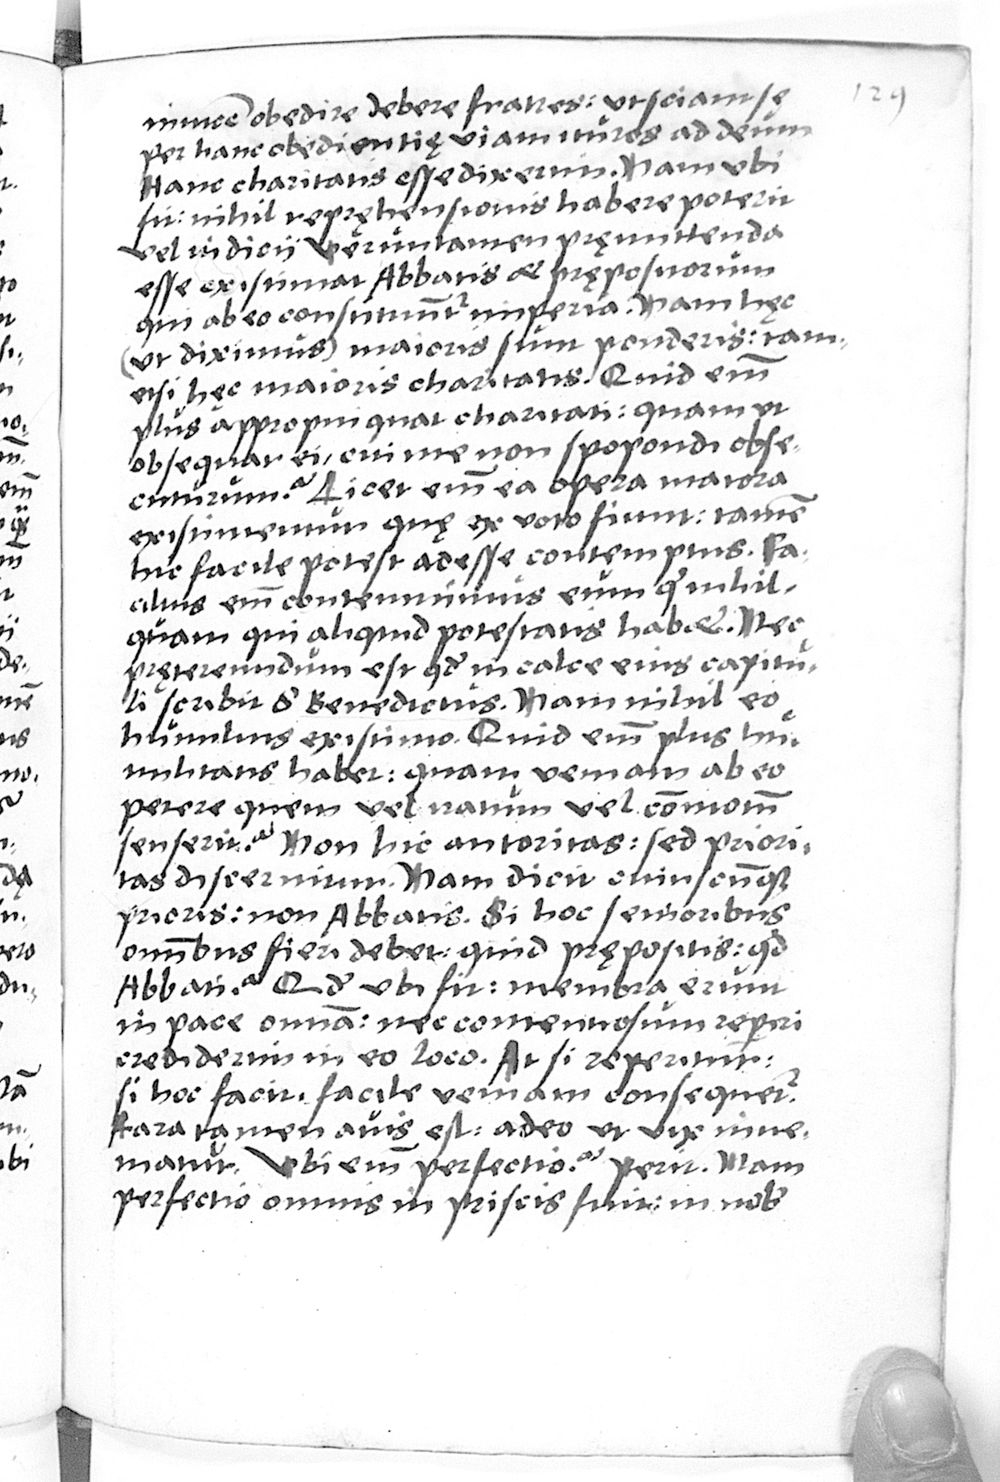 129
inuicē obedire debere fratres: ut sciant sę
per hanc obedientię viam ituros ad deum
Hanc charitatis esse dixerim. Nam ubi
fit: nihil repręhensionis habere poterit
vel iudicii Veruntamen pręmittenda
esse existimat Abbatis & prępositorum
qui ab eo constituūtr imperia. Nam hęc
(ut diximus) maioris sunt ponderis: tam-
etsi hęc maioris charitatis. Quid em̄
plus appropinquat charitati: quam ut
obsequar ei, cui me non spopondi obse-
cuturum? Licet em̄ ea opera maiora
existimentur quę ex voto fiunt: tamē
hic facile potest adesse contemptus. Fa-
cilius em̄ contemnimus eum q nihil,
quam qui aliquid potestatis habet. Nec
prętereundum est qd in calce eius capitu-
li scribit S Benedictus. Nam nihil eo
humilius existimo. Quid em̄ plus hu-
militatis habet: quam veniam ab eo
petere quem vel iratum vel cōmotū
senserit? Non hic autoritas: sed priori-
tas discernitur. Nam dicit cuiuscūq
prioris: non Abbatis. Si hoc senioribus
omībus fieri debet: quid prępositis: qd
Abbati? Qd ubi fit: membra erunt
in pace omīa: nec contentiosum reperi
crediderim in eo loco. At si reperitur:
si hoc facit, facile veniam consequetr.
Rara tamen avis est: adeo ut vix inve-
niatur. Vbi em̄ perfectio? perit. Nam
perfectio omnis in priscis fuit: in nob